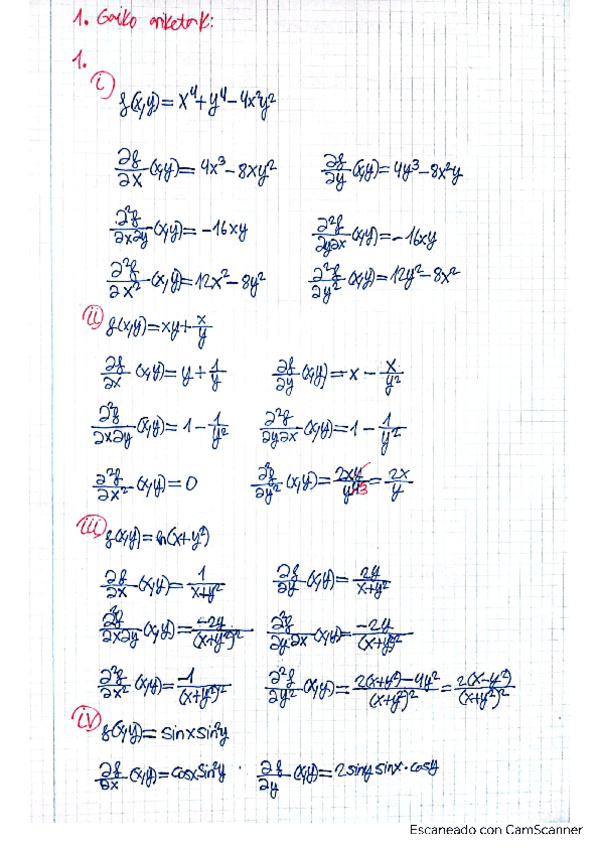 1. Gaiko ariketak:
1.
i) f(x,y)=x⁴+y⁴-4x²y²
∂f/∂x (x,y)=4x³-8xy² ∂f/∂y (x,y)=4y³-8x²y
∂²f/∂x∂y (x,y)=-16xy ∂²f/∂y∂x (x,y)=-16xy
∂²f/∂x² (x,y)=12x²-8y² ∂²f/∂y² (x,y)=12y²-8x²
ii) f(x,y)=xy+x/y
∂f/∂x (x,y)=y+1/y ∂f/∂y (x,y)=x-x/y²
∂²f/∂x∂y (x,y)=1-1/y² ∂²f/∂y∂x (x,y)=1-1/y²
∂²f/∂x² (x,y)=0 ∂²f/∂y² (x,y)=2xy/y⁴3=2x/y
iii) f(x,y)=ln(x+y²)
∂f/∂x (x,y)=1/(x+y²) ∂f/∂y (x,y)=2y/(x+y²)
∂²f/∂x∂y (x,y)=-2y/(x+y²)² ∂²f/∂y∂x (x,y)=-2y/(x+y²)²
∂²f/∂x² (x,y)=-1/(x+y²)² ∂²f/∂y² (x,y)=2(x+y²)-4y²/(x+y²)²=2(x-y²)/(x+y²)²
iv) f(x,y)=sinxsin²y
∂f/∂x (x,y)=cosxsin²y · ∂f/∂y (x,y)=2siny sinx·cosy
Escaneado con CamScanner